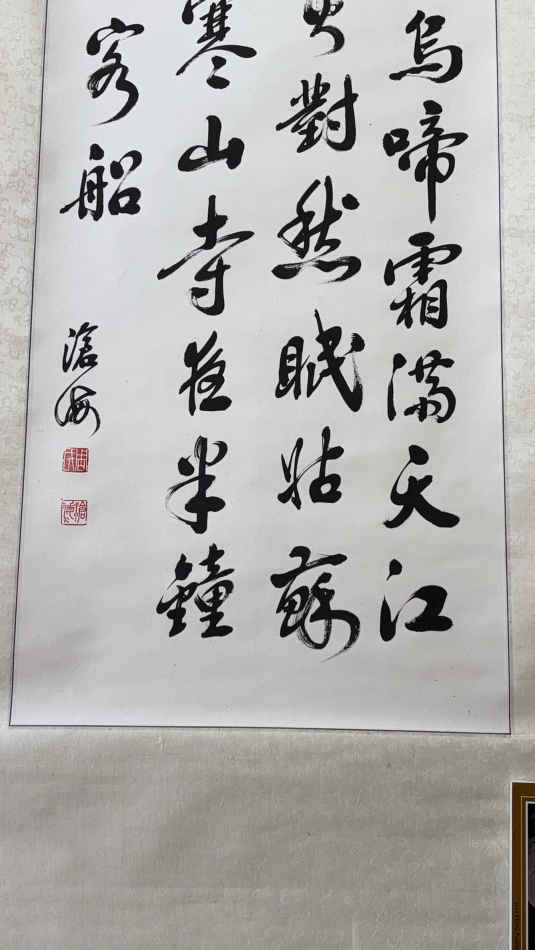 烏啼霜滿天江
火對愁眠姑蘇
寒山寺夜半鐘
客船
滄海